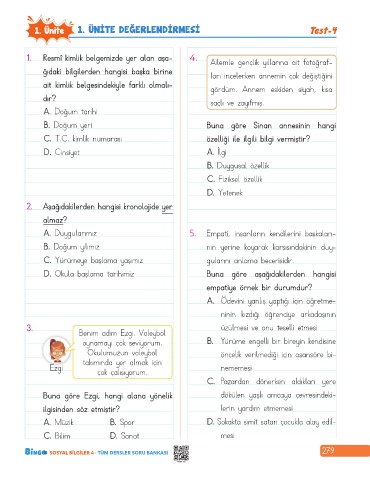 1. Ünite
1. ÜNİTE DEĞERLENDİRMESİ
Test-4
1. Resmî kimlik belgemizde yer alan aşa-
ğıdaki bilgilerden hangisi başka birine
ait kimlik belgesindekiyle farklı olmalı-
dır?
A. Doğum tarihi
B. Doğum yeri
C. T.C. kimlik numarası
D. Cinsiyet
2. Aşağıdakilerden hangisi kronolojide yer
almaz?
A. Duygularımız
B. Doğum yılımız
C. Yürümeye başlama yaşımız
D. Okula başlama tarihimiz
3.
Benim adım Ezgi. Voleybol
oynamayı çok seviyorum.
Okulumuzun voleybol
takımında yer almak için
çok çalışıyorum.
Ezgi
Buna göre Ezgi, hangi alana yönelik
ilgisinden söz etmiştir?
A. Müzik B. Spor
C. Bilim D. Sanat
4.
Ailemle gençlik yıllarına ait fotoğraf-
ları incelerken annemin çok değiştiğini
gördüm. Annem eskiden siyah, kısa
saçlı ve zayıfmış.
Buna göre Sinan annesinin hangi
özelliği ile ilgili bilgi vermiştir?
A. İlgi
B. Duygusal özellik
C. Fiziksel özellik
D. Yetenek
5. Empati, insanların kendilerini başkaları-
nın yerine koyarak karşısındakinin duy-
gularını anlama becerisidir.
Buna göre aşağıdakilerden hangisi
empatiye örnek bir durumdur?
A. Ödevini yanlış yaptığı için öğretme-
ninin kızdığı öğrenciye arkadaşının
üzülmesi ve onu teselli etmesi
B. Yürüme engelli bir bireyin kendisine
öncelik verilmediği için asansöre bi-
nememesi
C. Pazardan dönerken aldıkları yere
dökülen yaşlı amcaya çevresindeki-
lerin yardım etmemesi
D. Sokakta simit satan çocukla alay edil-
mesi
BİNGO SOSYAL BİLGİLER 4 - TÜM DERSLER SORU BANKASI
279